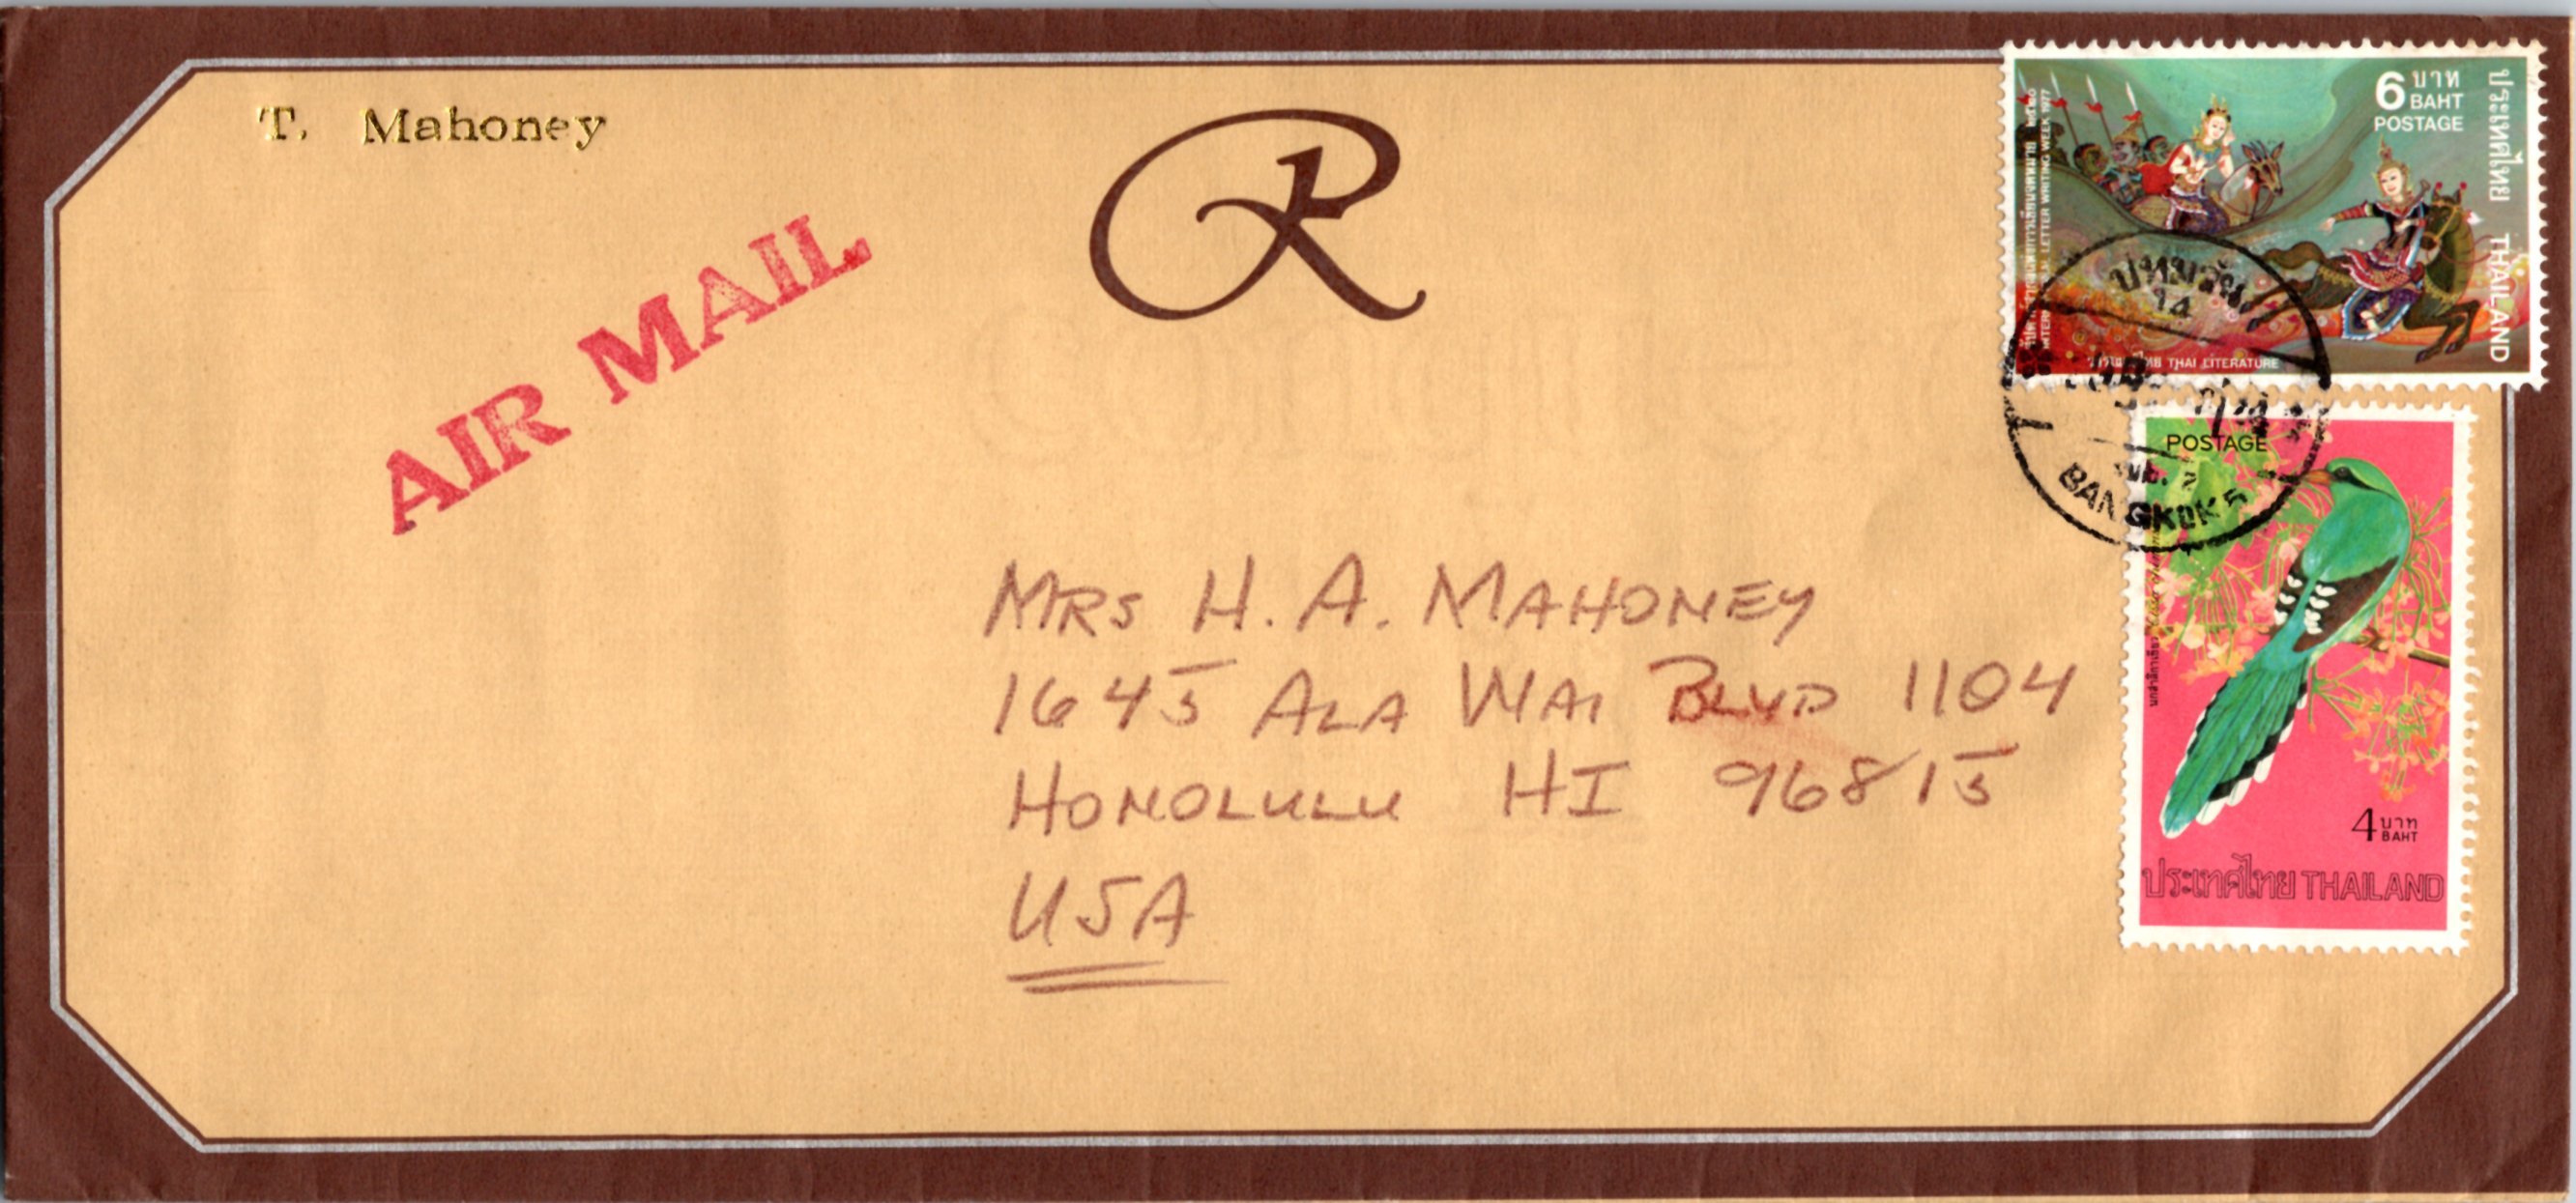 T. Mahoney
R
AIR MAIL
MRS H. A. MAHONEY
1645 ALA WAI BLVD 1104
HONOLULU HI 96815
USA
6 บาท
BAHT
POSTAGE
ประเทศไทย THAILAND
LETTER WRITING WEEK 1977
วรรณคดีไทย THAI LITERATURE
ปทุมวัน
14
BANGKOK 5
POSTAGE
4 บาท
BAHT
ประเทศไทย THAILAND